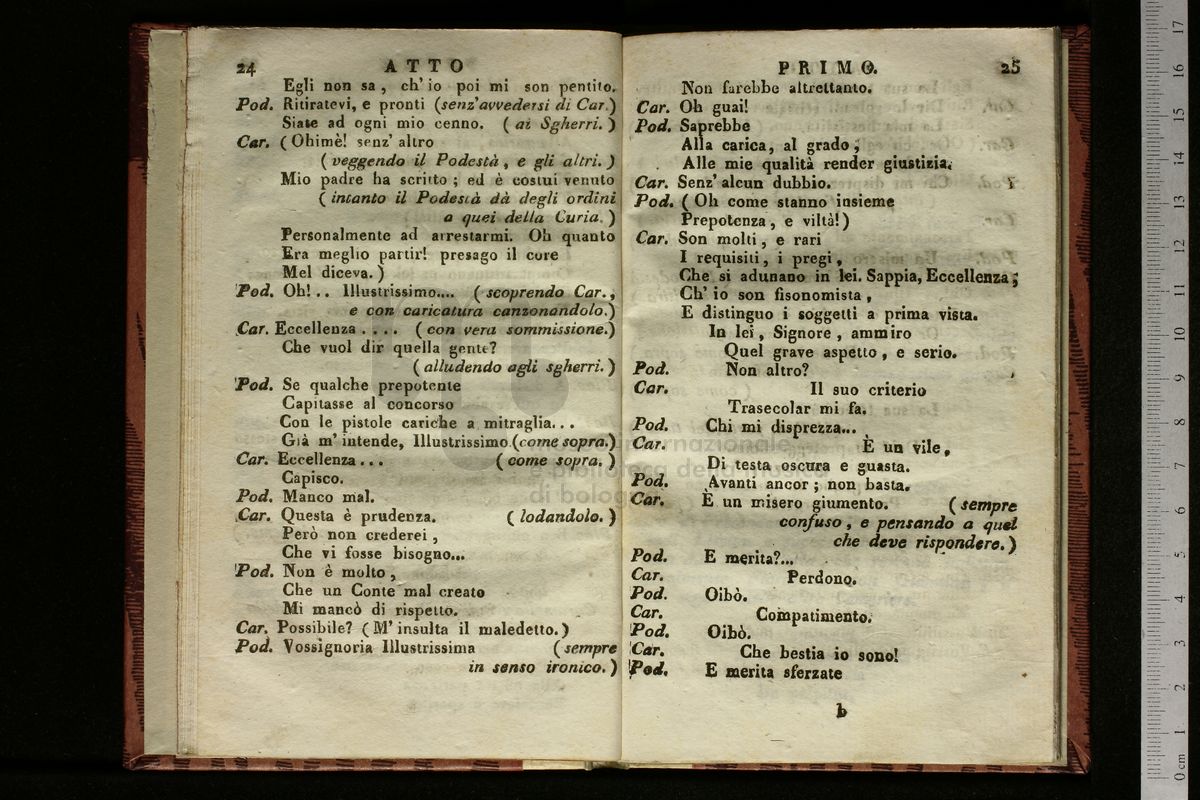 24 ATTO
Egli non sa, ch' io poi mi son pentito.
Pod. Ritiratevi, e pronti (senz'avvedersi di Car.)
Siate ad ogni mio cenno. (ai Sgherri.)
Car. (Ohimè! senz' altro
(veggendo il Podestà, e gli altri.)
Mio padre ha scritto; ed è costui venuto
(intanto il Podestà dà degli ordini
a quei della Curia.)
Personalmente ad arrestarmi. Oh quanto
Era meglio partir! presago il core
Mel diceva.)
Pod. Oh!.. Illustrissimo.... (scoprendo Car.,
e con caricatura canzonandolo.)
Car. Eccellenza .... (con vera sommissione.)
Che vuol dir quella gente?
(alludendo agli sgherri.)
Pod. Se qualche prepotente
Capitasse al concorso
Con le pistole cariche a mitraglia...
Già m' intende, Illustrissimo.(come sopra.)
Car. Eccellenza... (come sopra.)
Capisco.
Pod. Manco mal.
Car. Questa è prudenza. (lodandolo.)
Però non crederei,
Che vi fosse bisogno...
Pod. Non è molto,
Che un Conte mal creato
Mi mancò di rispetto.
Car. Possibile? (M' insulta il maledetto.)
Pod. Vossignoria Illustrissima (sempre
in senso ironico.)
PRIMO. 25
Non farebbe altrettanto.
Car. Oh guai!
Pod. Saprebbe
Alla carica, al grado,
Alle mie qualità render giustizia.
Car. Senz' alcun dubbio.
Pod. (Oh come stanno insieme
Prepotenza, e viltà!)
Car. Son molti, e rari
I requisiti, i pregi,
Che si adunano in lei. Sappia, Eccellenza;
Ch' io son fisonomista,
E distinguo i soggetti a prima vista.
In lei, Signore, ammiro
Quel grave aspetto, e serio.
Pod. Non altro?
Car. Il suo criterio
Trasecolar mi fa.
Pod. Chi mi disprezza...
Car. È un vile,
Di testa oscura e guasta.
Pod. Avanti ancor; non basta.
Car. È un misero giumento. (sempre
confuso, e pensando a quel
che deve rispondere.)
Pod. E merita?...
Car. Perdono.
Pod. Oibò.
Car. Compatimento.
Pod. Oibò.
Car. Che bestia io sono!
Pod. E merita sferzate
b